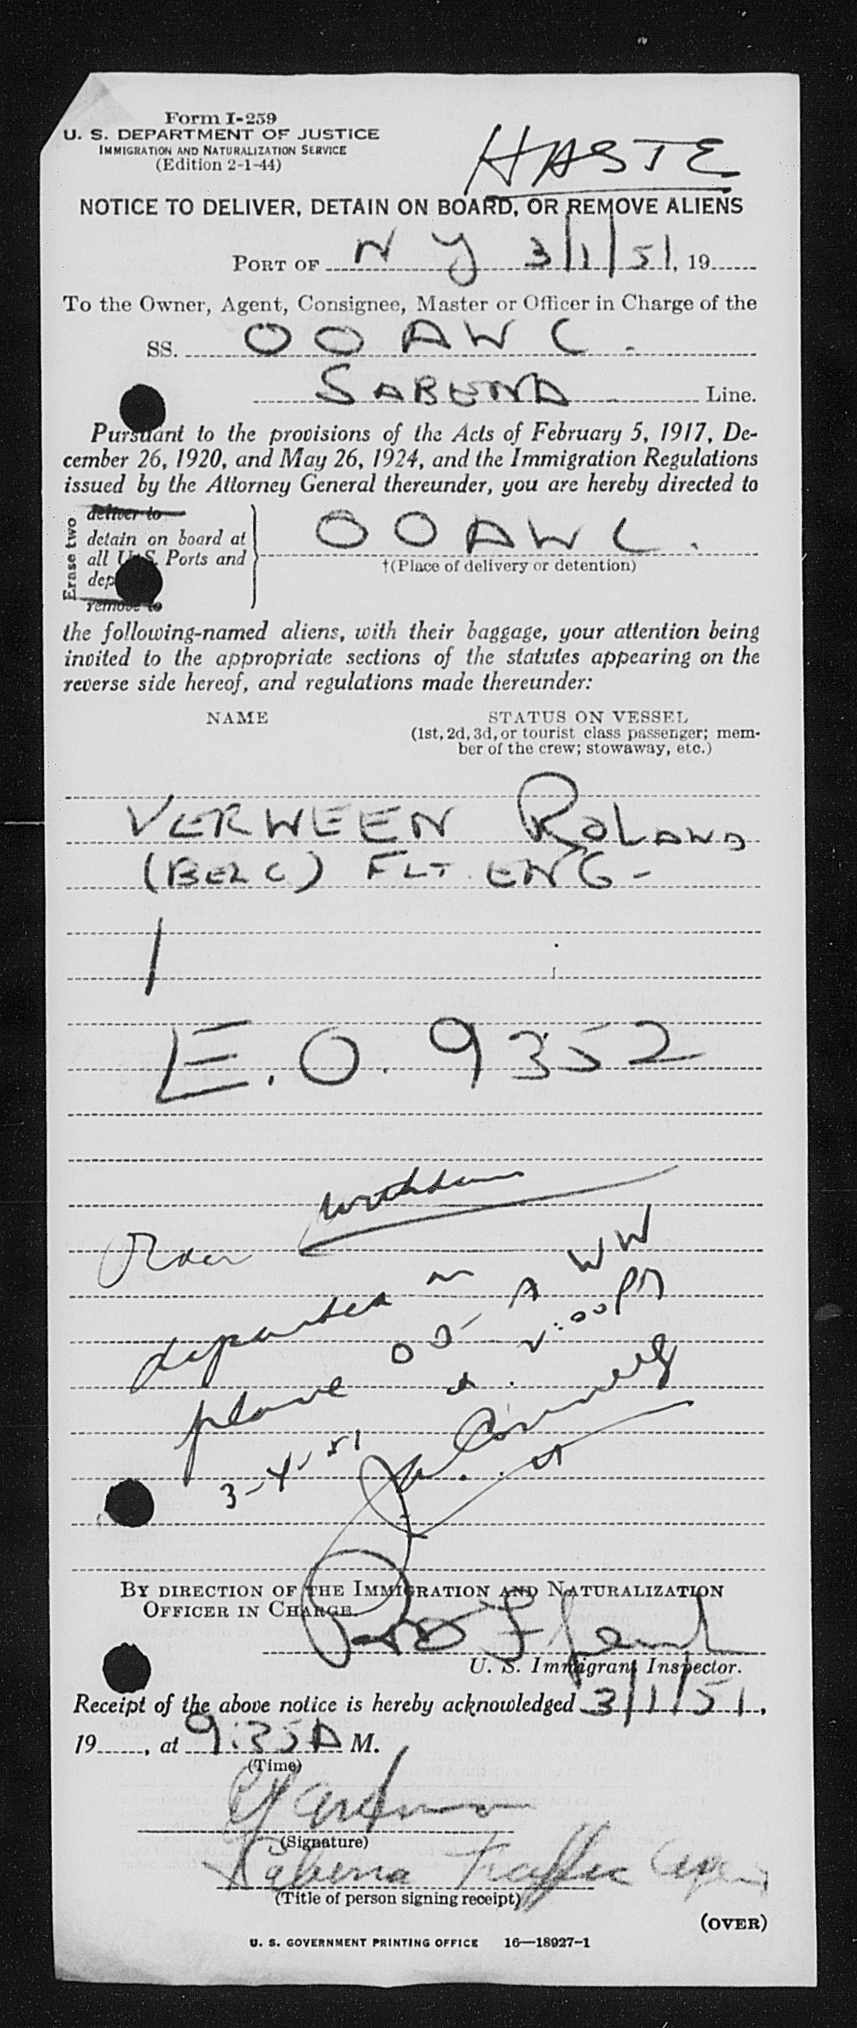 Form I-259
U. S. DEPARTMENT OF JUSTICE
IMMIGRATION AND NATURALIZATION SERVICE
(Edition 2-1-44)
HASTE
NOTICE TO DELIVER, DETAIN ON BOARD, OR REMOVE ALIENS
PORT OF N Y 3/1/51, 19
To the Owner, Agent, Consignee, Master or Officer in Charge of the
SS. OO AWC.
SABENA Line.
Pursuant to the provisions of the Acts of February 5, 1917, De-
cember 26, 1920, and May 26, 1924, and the Immigration Regulations
issued by the Attorney General thereunder, you are hereby directed to
Erase two
deliver to
detain on board at
all U.S. Ports and
dep
remove to
OO AWC.
†(Place of delivery or detention)
the following-named aliens, with their baggage, your attention being
invited to the appropriate sections of the statutes appearing on the
reverse side hereof, and regulations made thereunder:
NAME STATUS ON VESSEL
(1st, 2d, 3d, or tourist class passenger; mem-
ber of the crew; stowaway, etc.)
VERWEEN ROLAND
(BELG) FLT. ENG-
1
E.O. 9352
Order
departed on
plane OO-AWW
2:00PM
3-4-51
BY DIRECTION OF THE IMMIGRATION AND NATURALIZATION
OFFICER IN CHARGE.
U. S. Immigrant Inspector.
Receipt of the above notice is hereby acknowledged 3/1/51,
19, at 9:35 A M.
(Time)
(Signature)
Sabena Traffic
(Title of person signing receipt)
(OVER)
U. S. GOVERNMENT PRINTING OFFICE 16—18927-1